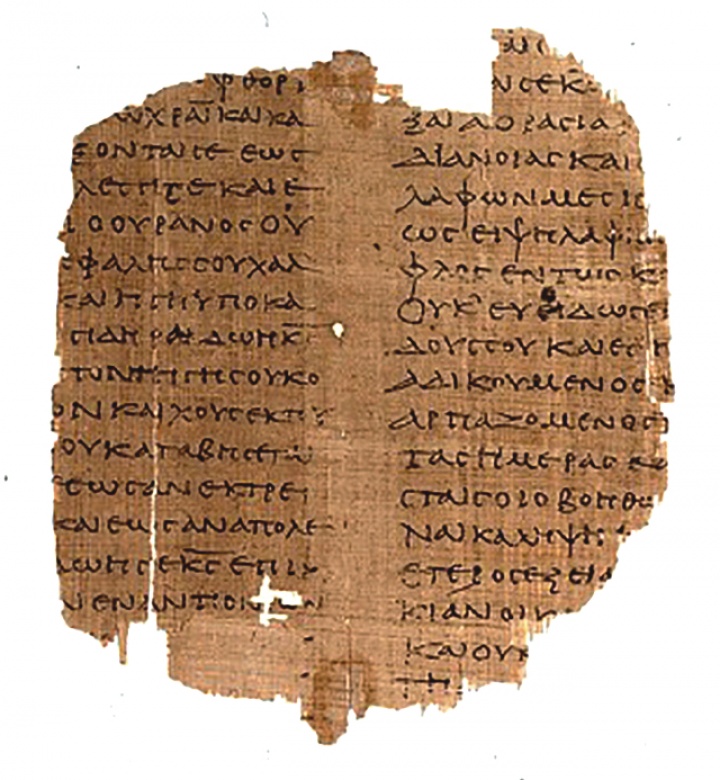 ΦΘΟΡΙ
ΩΧΡΑΙ ΚΑΙ ΚΑ
ΞΟΝΤΑΙ ΣΕ ΕΩΣ
ΛΕΣΗ ΣΕ ΚΑΙ Ε
Ι Ο ΟΥΡΑΝΟΣ Ο Υ
ΕΦΑΛΗΣ ΣΟΥ ΧΑΛ
ΚΑΙ Η ΓΗ Η ΥΠΟΚΑ
ΣΙΔΗΡΑ ΔΩΗ ΚΣ
ΤΟΝ ΤΗ ΓΗ ΣΟΥ ΚΟ
ΟΝ ΚΑΙ ΧΟΥΣ ΕΚ ΤΟΥ
ΟΥ ΚΑΤΑΒΗΣΕΤΑΙ
ΕΩΣ ΑΝ ΕΚΤΡΕΙ
ΚΑΙ ΕΩΣ ΑΝ ΑΠΟΛΕ
ΔΩΗ ΣΕ ΚΣ ΕΠΙΚ
Ν ΕΝΑΝΤΙΟΝ ΤΩΝ
ΑΙ ΣΕ Κ
ΞΑΙ ΑΟΡΑΣΙΑ
ΔΙΑΝΟΙΑΣ ΚΑΙ
ΛΑΦΩΝ ΜΕΣΗ
ΩΣ ΕΙ ΨΗΛΑΦΗ
ΦΛΟΣ ΕΝ ΤΩΙ ΣΚ
ΟΥΚ ΕΥΟΔΩΣΕΙ
ΔΟΥΣ ΣΟΥ ΚΑΙ ΕΣΗ
ΑΔΙΚΟΥΜΕΝΟΣ Κ
ΑΡΠΑΖΟΜΕΝΟΣ Π
ΤΑΣ ΗΜΕΡΑΣ ΚΑ
ΣΤΑΙ ΣΟΙ Ο ΒΟΗΘΩ
ΝΑΙΚΑ ΛΗΨΗ
ΕΤΕΡΟΣ ΕΞΕΙ Α
ΚΙΑΝ ΟΙΚ
ΚΑΙ ΟΥΚ